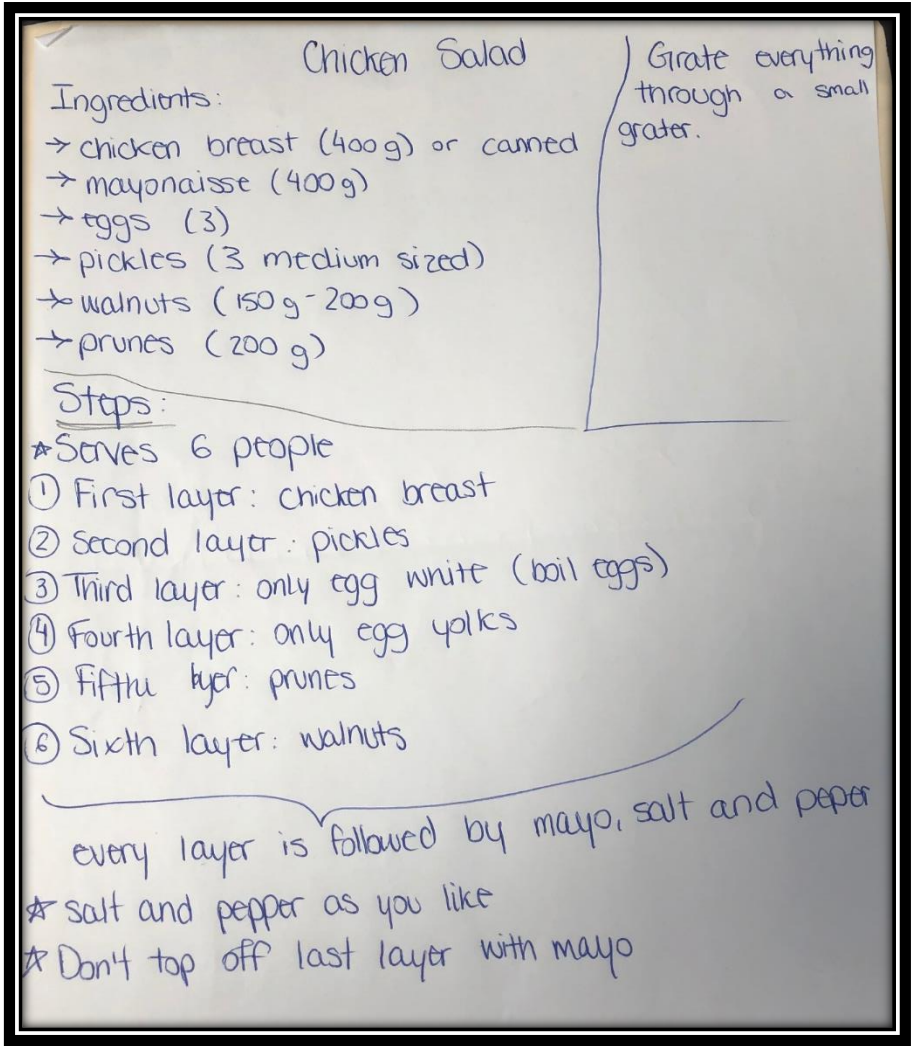 Chicken Salad
Ingredients:
→ chicken breast (400g) or canned
→ mayonaisse (400g)
→ eggs (3)
→ pickles (3 medium sized)
→ walnuts (150g-200g)
→ prunes (200 g)
Grate everything
through a small
grater.
Steps:
☆ Serves 6 people
① First layer: chicken breast
② Second layer: pickles
③ Third layer: only egg white (boil eggs)
④ Fourth layer: only egg yolks
⑤ Fifth layer: prunes
⑥ Sixth layer: walnuts
every layer is followed by mayo, salt and peper
☆ salt and pepper as you like
☆ Don't top off last layer with mayo